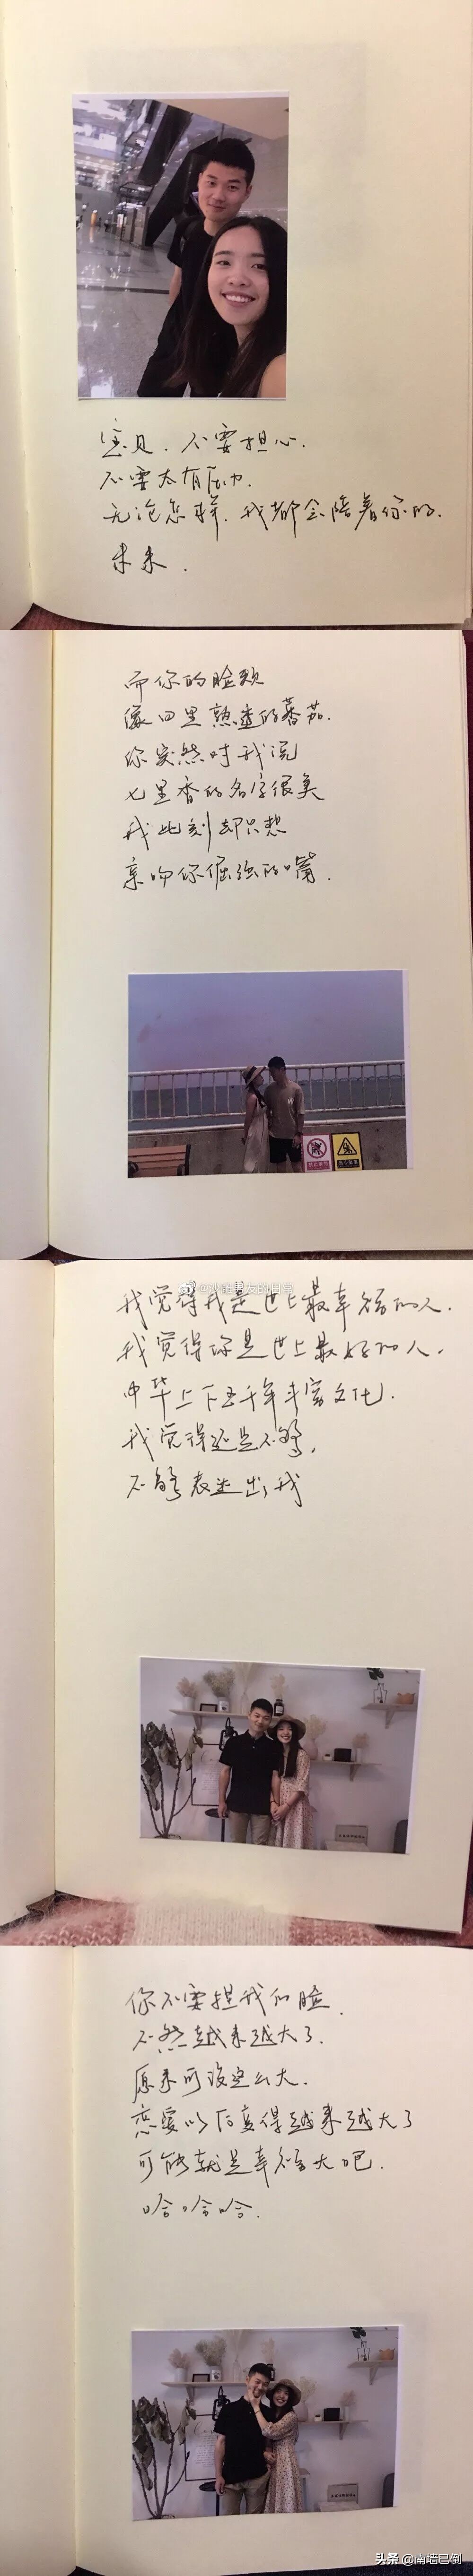 宝贝．不要担心．
不要太有压力．
无论怎样．我都会陪着你的．
未来．
而你的脸颊
像田里熟透的蕃茄．
你突然对我说
七里香的名字很美
我此刻却只想
亲吻你倔强的嘴．
我觉得我是世上最幸福的人．
我觉得你是世上最好的人．
中华上下五千年丰富文化．
我觉得还是不够，
不够表达出我
你不要捏我的脸．
不然越来越大了．
原来可没这么大．
恋爱以后真得越来越大了
可能就是幸福大吧．
哈哈哈．
头条 @南墙已倒